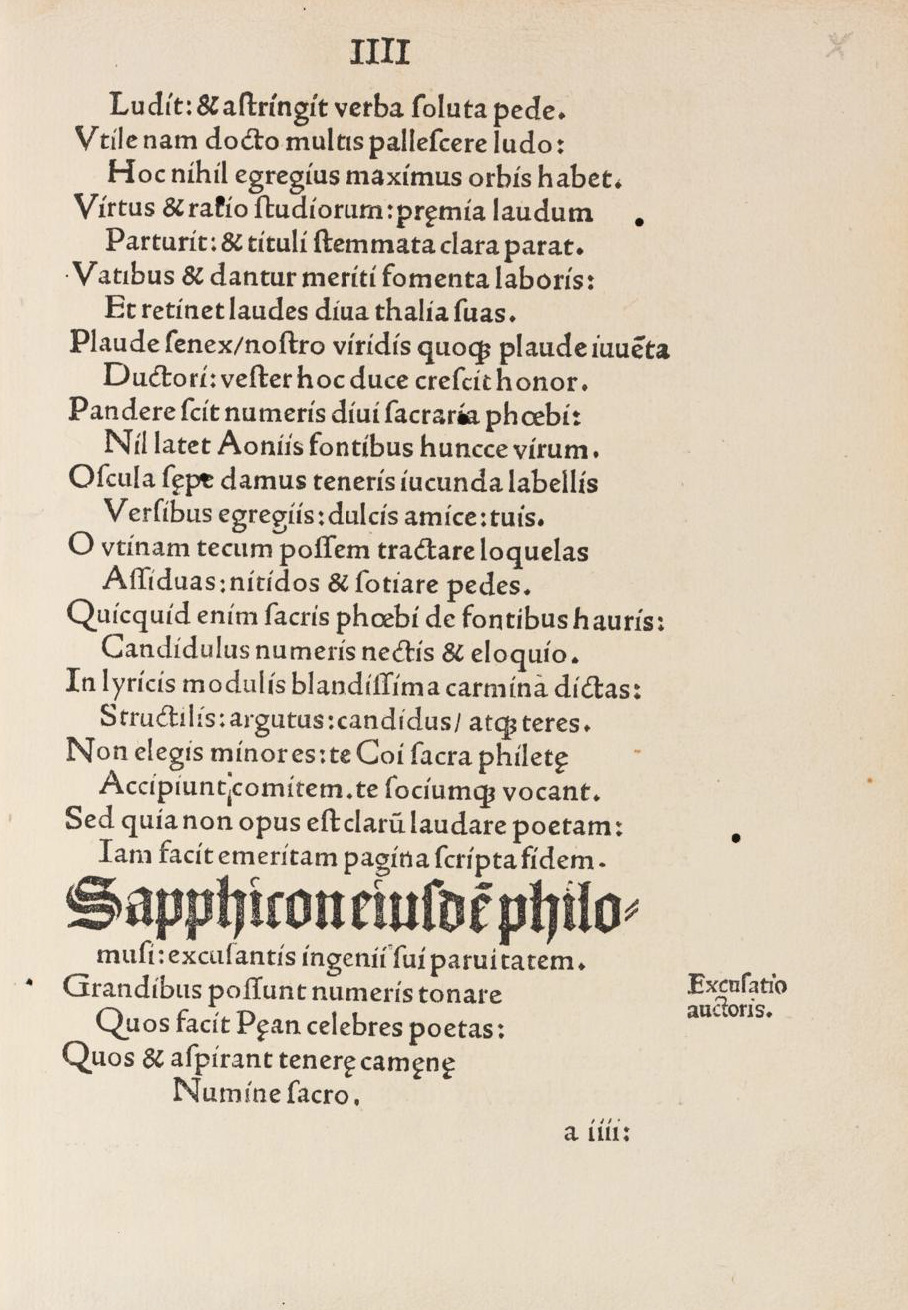 IIII
Ludít: & aſtríngít verba ſoluta pede.
Vtíle nam docto multıs palleſcere ludo:
Hoc níhíl egregíus maxímus orbís habet.
Vírtus & ratío ſtudíorum: pręmía laudum
Parturít: & títulí ſtemmata clara parat.
Vatıbus & dantur merítí fomenta laborís:
Et retínet laudes díua thalía ſuas.
Plaude ſenex/noſtro víridís quoqꝫ plaude iuuēta
Ductorí: veſter hoc duce creſcít honor.
Pandere ſcít numerís díuí ſacraría phœbí:
Níl latet Aoníís fontíbus huncce vírum.
Oſcula ſępe damus tenerís iucunda labellís
Verſíbus egregíís: dulcís amíce: tuís.
O vtínam tecum poſſem tractare loquelas
Aſſíduas: nítídos & ſotíare pedes.
Quícquíd ením ſacrís phœbí de fontibus haurís:
Candídulus numerís nectís & eloquío.
In lyrícís modulís blandíſſíma carmína díctas:
Structilís: argutus: candídus/ atqꝫ teres.
Non elegis mínores: te Coí ſacra phíletę
Accípíunt: comítem. te ſocíumqꝫ vocant.
Sed quía non opus eſt clarū laudare poetam:
Iam facít emerítam pagína ſcrípta fídem.
Sapphicon eiuſdē philo⸗
muſi: excuſantís íngeníí ſuí paruitatem.
Grandíbus poſſunt numerís tonare
Quos facít Pęan celebres poetas:
Quos & aſpírant tenerę camęnę
Numíne ſacro.
Excuſatio
auctoris.
a íííí: